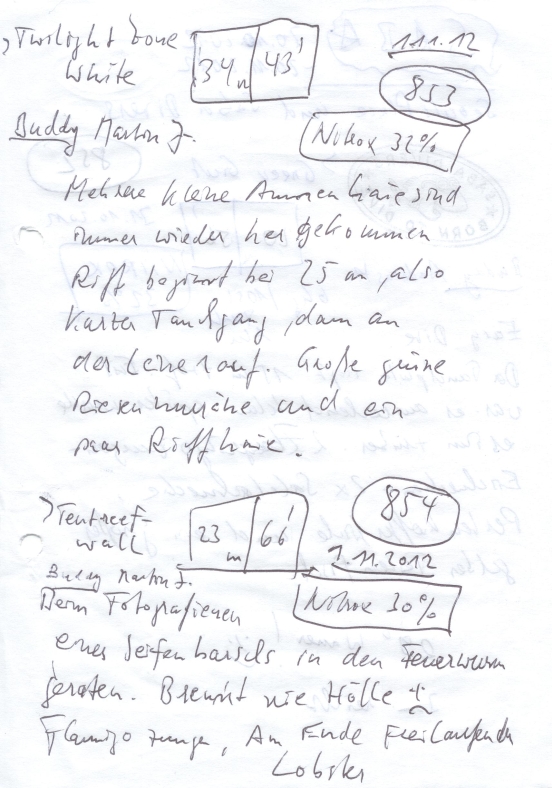 Twilight Zone
White
34 m 43'
1.11.12
853
Buddy Martin J.
Nitrox 32%
Mehrere kleine Ammenhaie sind
immer wieder hergekommen
Riff beginnt bei 25 m, also
kurzer Tauchgang, dann an
der Leine rauf. Große grüne
Riesenmuräne und ein
paar Riffhaie.
Tentreef-
wall
23 m 66'
854
1.11.2012
Buddy Martin J.
Nitrox 30%
Beim Fotografieren
eines Seifenbarsch in den Feuerwurm
geraten. Brennt wie Hölle
Flamingozunge, Am Ende Freilaufender
Lobster